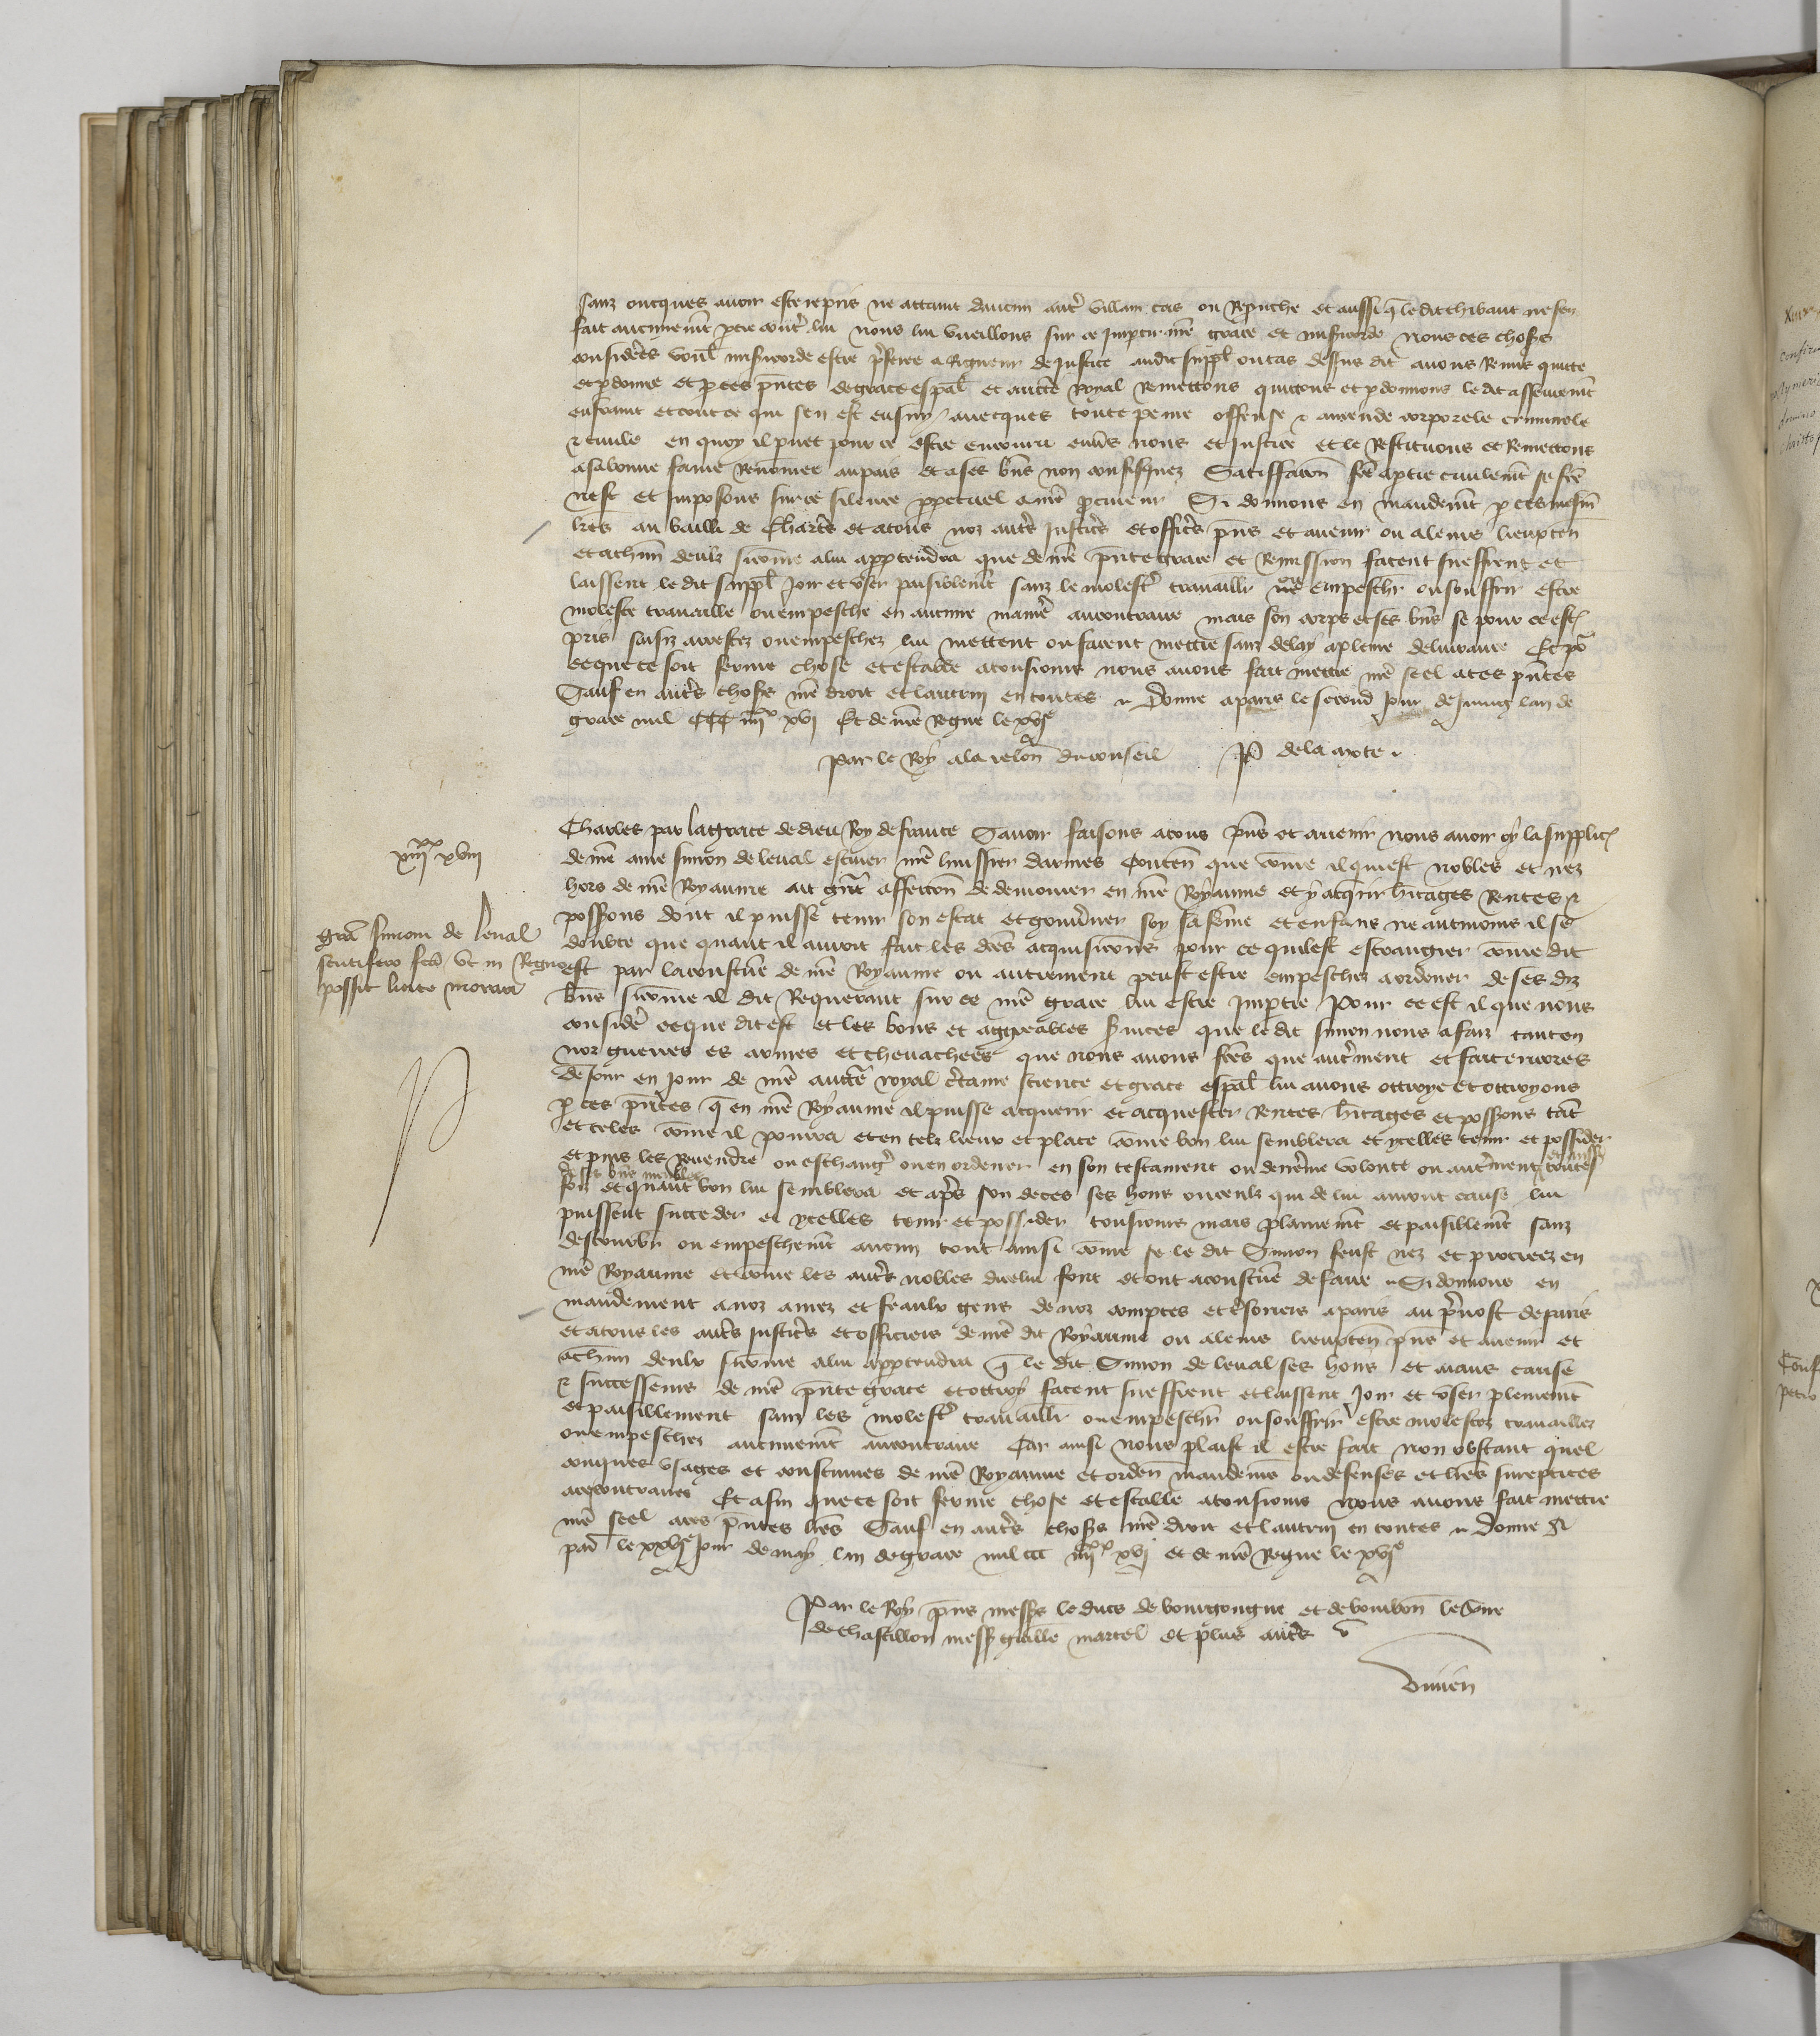 sanz oncques avoir este repris ne attaint daucun autre villain cas ou reprouche et aussi que ledit thibaut ne sen
fait aucunement partie contre lui nous lui vueillons sur ce impartir nre grace et misericorde nous ces choses
considerees voul misericorde estre preferee a rigueur de justice audit suppl ou cas dessus dit avons remis quitte
et pardonne et par ces pntes de grace espal et aucte royal remettons quittons et pardonnons le dit asseurement
enfraint et tout ce qui sen est ensuy avecques toute peine offense et amende corporele criminele
et civile en quoy il puet pour ce estre encouru envers nous et justice et le restituons et remettons
a sa bonne fame renommee au pais et a ses biens non confisquez satisfaccion fte a partie civilement se fte
nest et imposons sur ce silence perpetuel a nre procureur Si donnons en mandement par ces mesmes
lres au bailli de Chartres et a tous noz autres justiciers et officiers pns et avenir ou a leurs lieuxten
et a chun deulx si come a lui appartendra que de nre pnte grace et remission facent sueffrent et
laissent le dit suppl joir et user paisiblement sanz le molester travaillier ne empescher ou souffrir estre
moleste travaille ou empesche en aucune maniere au contraire mais son corps et ses biens se pour ce est
pris saisiz arrestez ou empeschez lui mettent ou facent mettre sanz delay a pleine delivrance Et pour
ce que ce soit ferme chose et estable a tousjours nous avons fait mettre nre seel a ces pntes
Sauf en autres choses nre droit et lautruy en toutes Donne a paris le second jour de juing lan de
grace mil CCC iiiixx xvi Et de nre regne le xvie
Par le Roy a la relon du conseil P de la mote
iiiixx xviii
Charles par la grace de dieu Roy de france Savoir faisons a tous pns et avenir nous avoir oy la supplic
de nre ame simon de leval escuier nre huissier darmes conten que come il qui est nobles et nez
hors de nre Royaume ait grant affeccion de demourer en nre Royaume et y acquerir heritages rentes et
possessions dont il puisse tenir son estat et gouverner soy sa femme et enfans ne autmoins il se
gra simoni de leval
scutifero fca ut in Regno
possit licite morari
doubte que quant il auroit fait les dces acquisicions pour ce quil est estrangier come dit
est par la coustume de nre Royaume ou autrement peust estre empeschez a ordener de ses diz
biens si come il dit Requerant sur ce nre grace lui estre impartie Pour ce est il que nous
consider ce que dit est et les bons et aggreables services que le dit simon nous a faiz tant en
noz guerres es armes et chevachees que nous avons ftes que autrement et fait encores
de jour en jour de nre aucte royal certaine science et grace espal lui avons ottroye et ottroyons
par ces pntes que en nre Royaume il puisse acquerir et acquester rentes heritages et possessions tant
et teles come il pourra et en telz lieux et place come bon lui semblera et ycelles tenir et possider
et puis les revendre ou eschanger ou en ordener en son testament ou derreniere volonte ou autrement toutes
et aussi
de ses biens meubles
foiz et quant bon lui semblera et apres son deces ses hoirs ou ceulz qui de lui auront cause lui
puissent succeder et ycelles tenir et possider tousjours mais plainement et paisiblement sanz
destourbier ou empeschement aucun tout ainsi come se le dit Simon feust nez et procreez en
nre Royaume et come les autres nobles dicelui font et ont acoustume de faire Si donnons en
mandement a noz amez et feaulx gens de noz comptes et tresoriers a paris au prevost de paris
et a tous les autres justiciers et officiers de nre dit Royaume ou a leurs lieuxten pns et avenir et
a chun deulx si come a lui appartendra que le dit Simon de leval ses hoirs et aians cause
et successeurs de nre pnte grace et ottroy facent sueffrent et laissent joir et user plenement
et paisiblement sanz les molester travaillier ou empescher ou souffrir estre molestez travaillez
ou empeschez aucunement au contraire Car ainsi nous plaist il estre fait non obstant quel
conques usages et coustumes de nre Royaume et orden mandemens ou defenses et lres sureptices
a ce contraires Et afin que ce soit ferme chose et estable a tousjours Nous avons fait mettre
nre seel a ces pntes lres Sauf en autres choses nre droit et lautruy en toutes Donne a
par le xxvie jour de may lan de grace mil ccc iiiixx xvi et de nre Regne le xvie
Par le Roy pns messrs le ducs de bourgongne et de bourbon le sire
de chastillon messr guille martel et plus autres
vivien